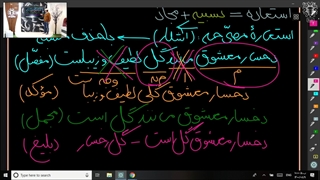 استعاره = تشبیه + مجاز
استعاره مصرحه (آشکار) ←
رخسار معشوق مانند گل لطیف و زیباست (مفصل)
رخسار معشوق گلی لطیف و زیباست (مؤکد)
رخسار معشوق مانند گل است (مجمل)
رخسار معشوق گل است - گل رخسار (بلیغ)